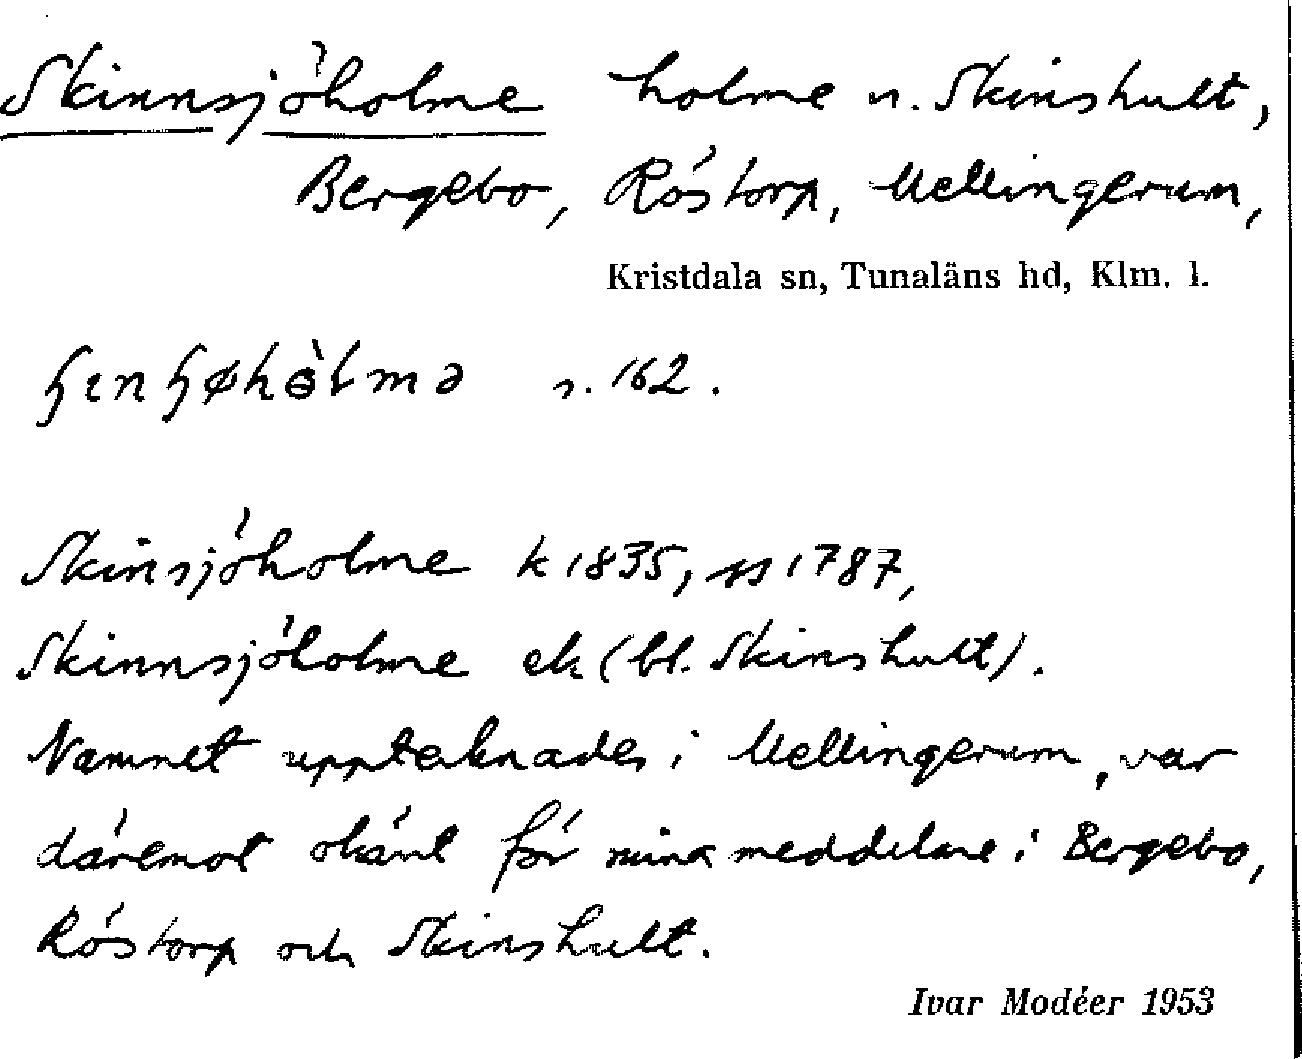 Skinnsjöholme holme n. Skinshult,
Bergebo, Röstorp, Mellingerum,
Kristdala sn, Tunaläns hd, Klm. l.
s. 162.
Skinsjöholme k 1835, ss 1787,
Skinnsjöholme ek (bl. Skinshult).
Namnet upptecknades i Mellingerum, var
däremot okänt för mina meddelare i Bergebo,
Röstorp och Skinshult.
Ivar Modéer 1953